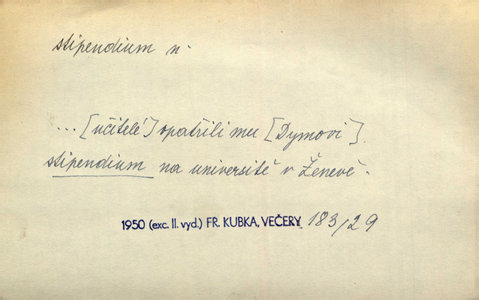 stipendium n.
... [učitelé] opatřili mu [Dymovi]
stipendium na universitě v Ženevě.
1950 (exc. II. vyd.) FR. KUBKA, VEČERY 183/29